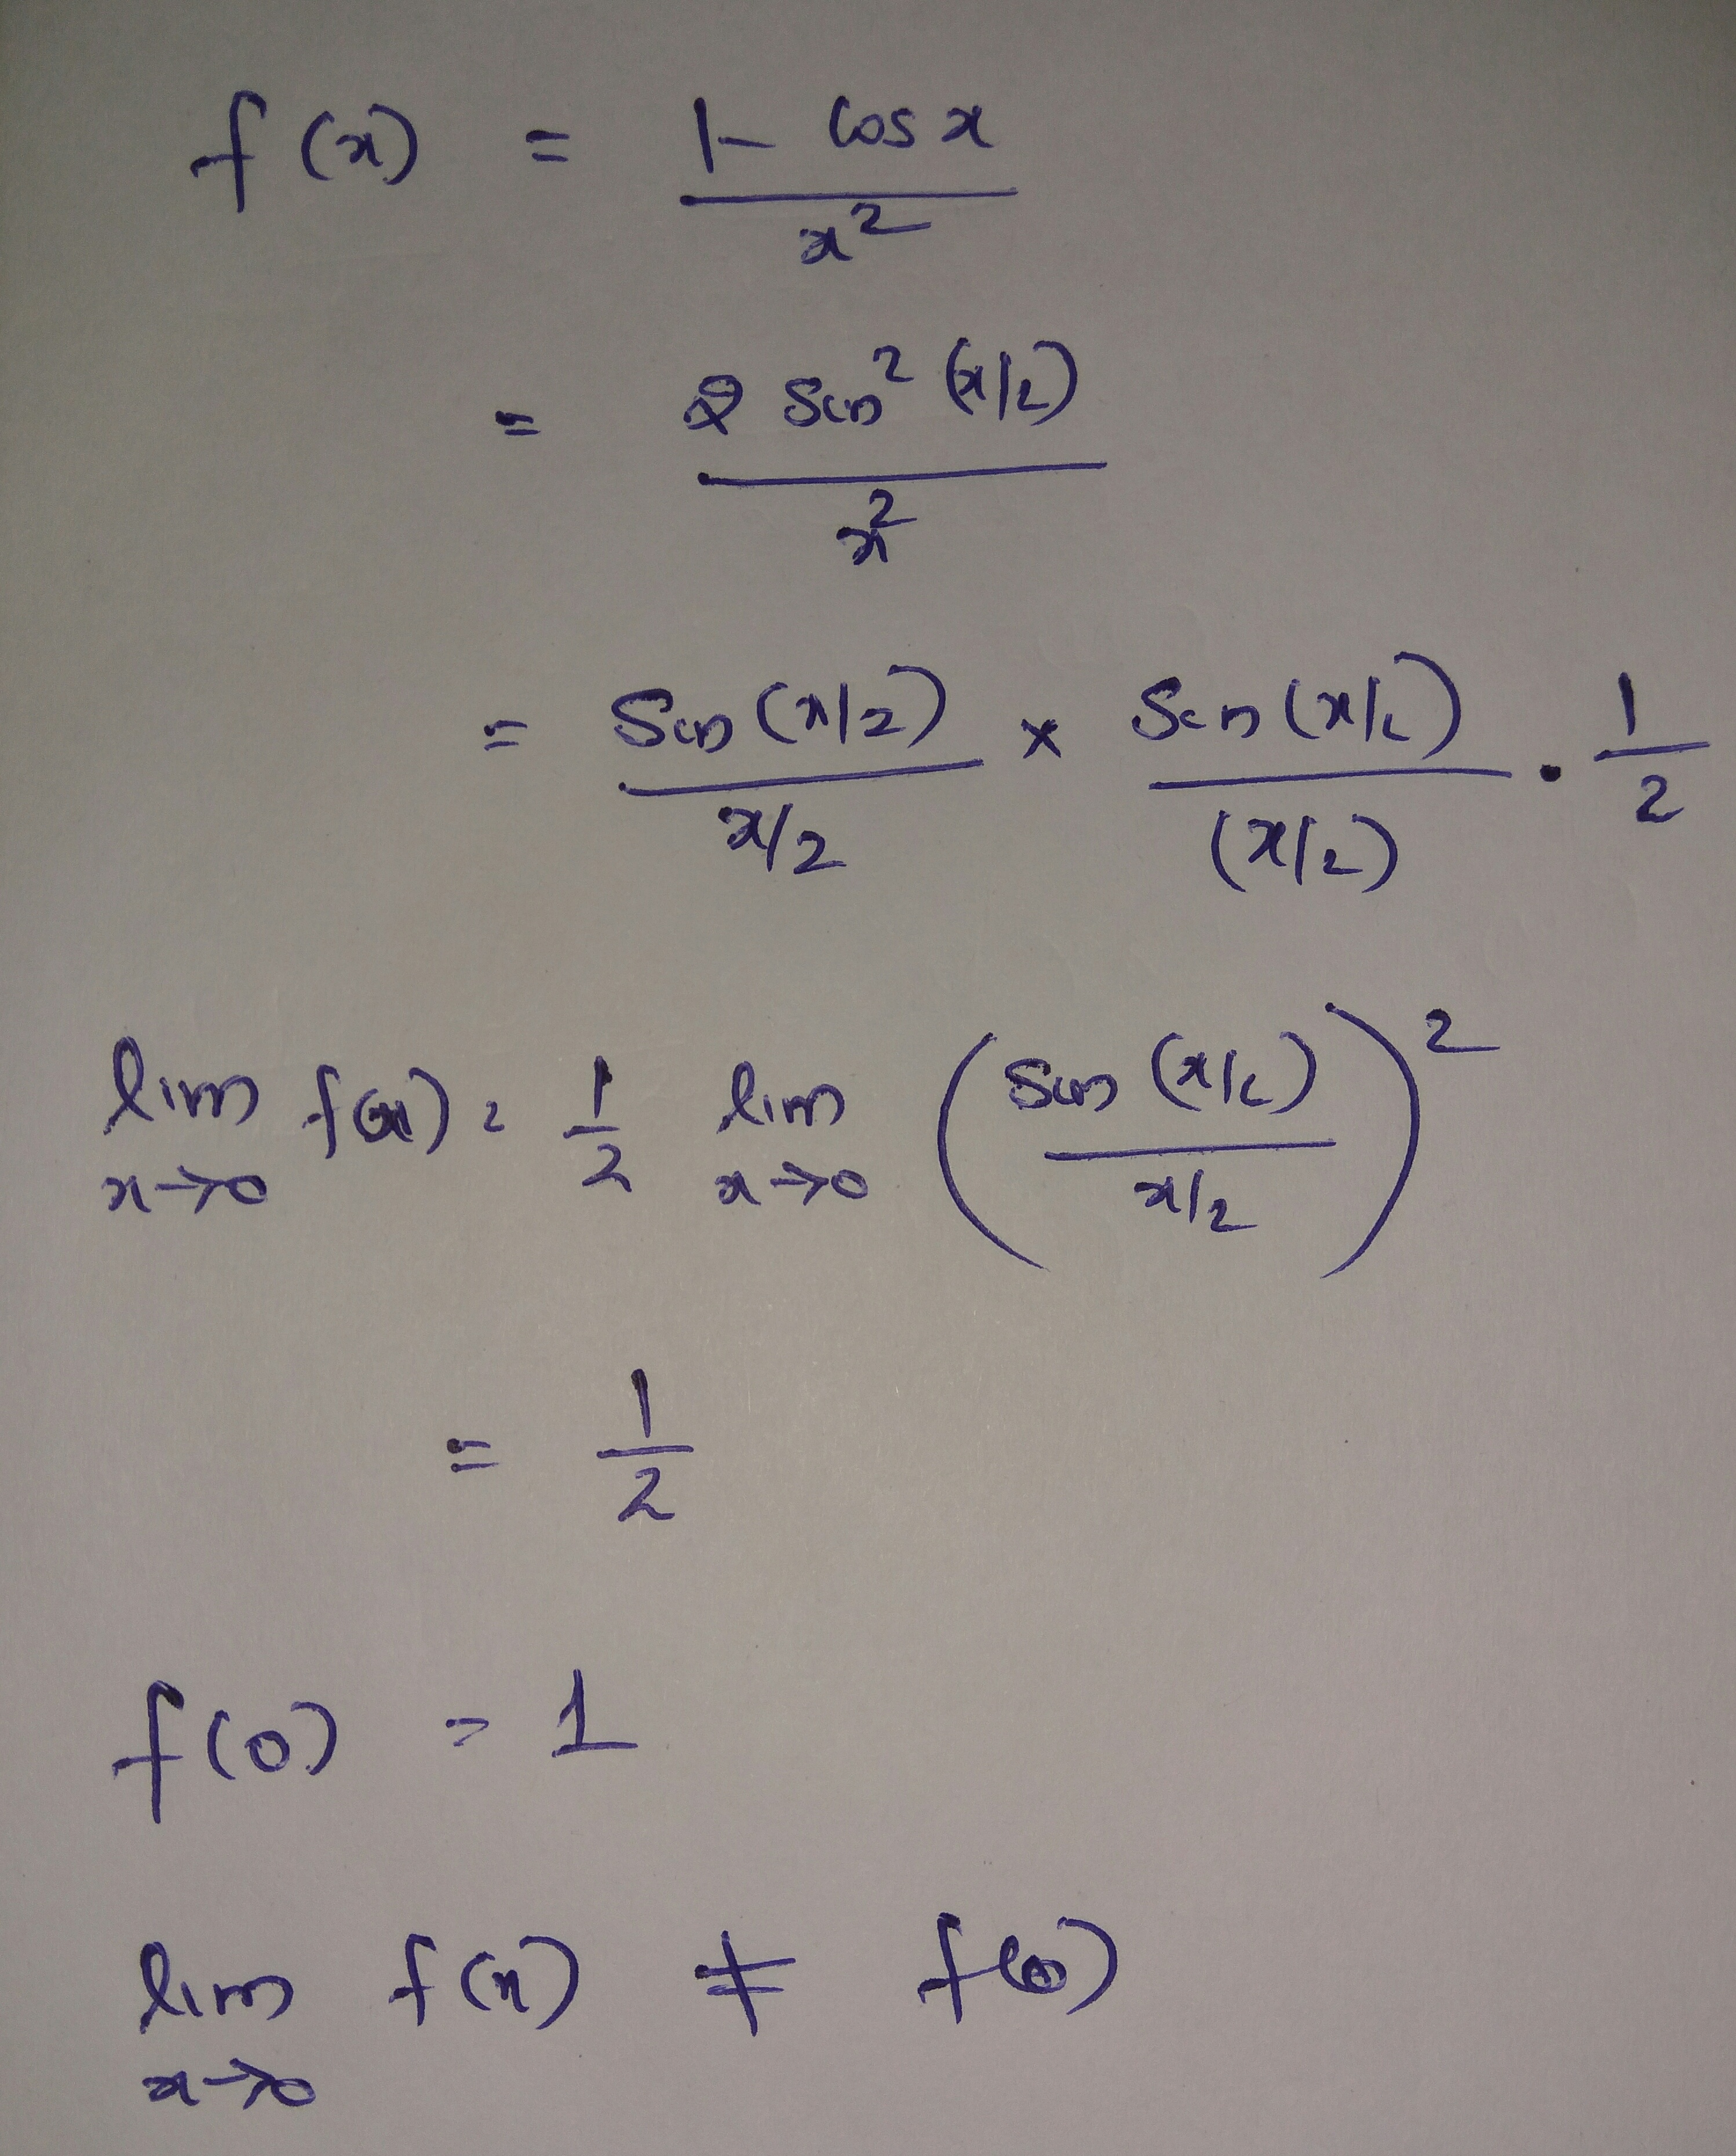 f(x) = (1 - cos x) / x²
= 2 sin² (x/2) / x²
= sin (x/2) / (x/2) × sin (x/2) / (x/2) · 1/2
lim x→0 f(x) = 1/2 lim x→0 (sin (x/2) / (x/2))²
= 1/2
f(0) = 1
lim x→0 f(x) ≠ f(0)